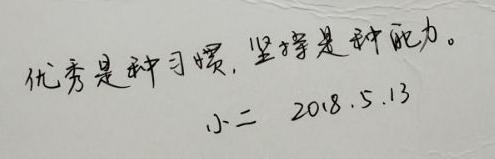 优秀是种习惯,坚撑是种能力。
小二 2018.5.13